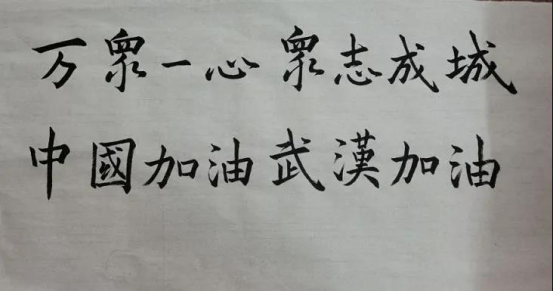 万眾一心眾志成城
中國加油武漢加油